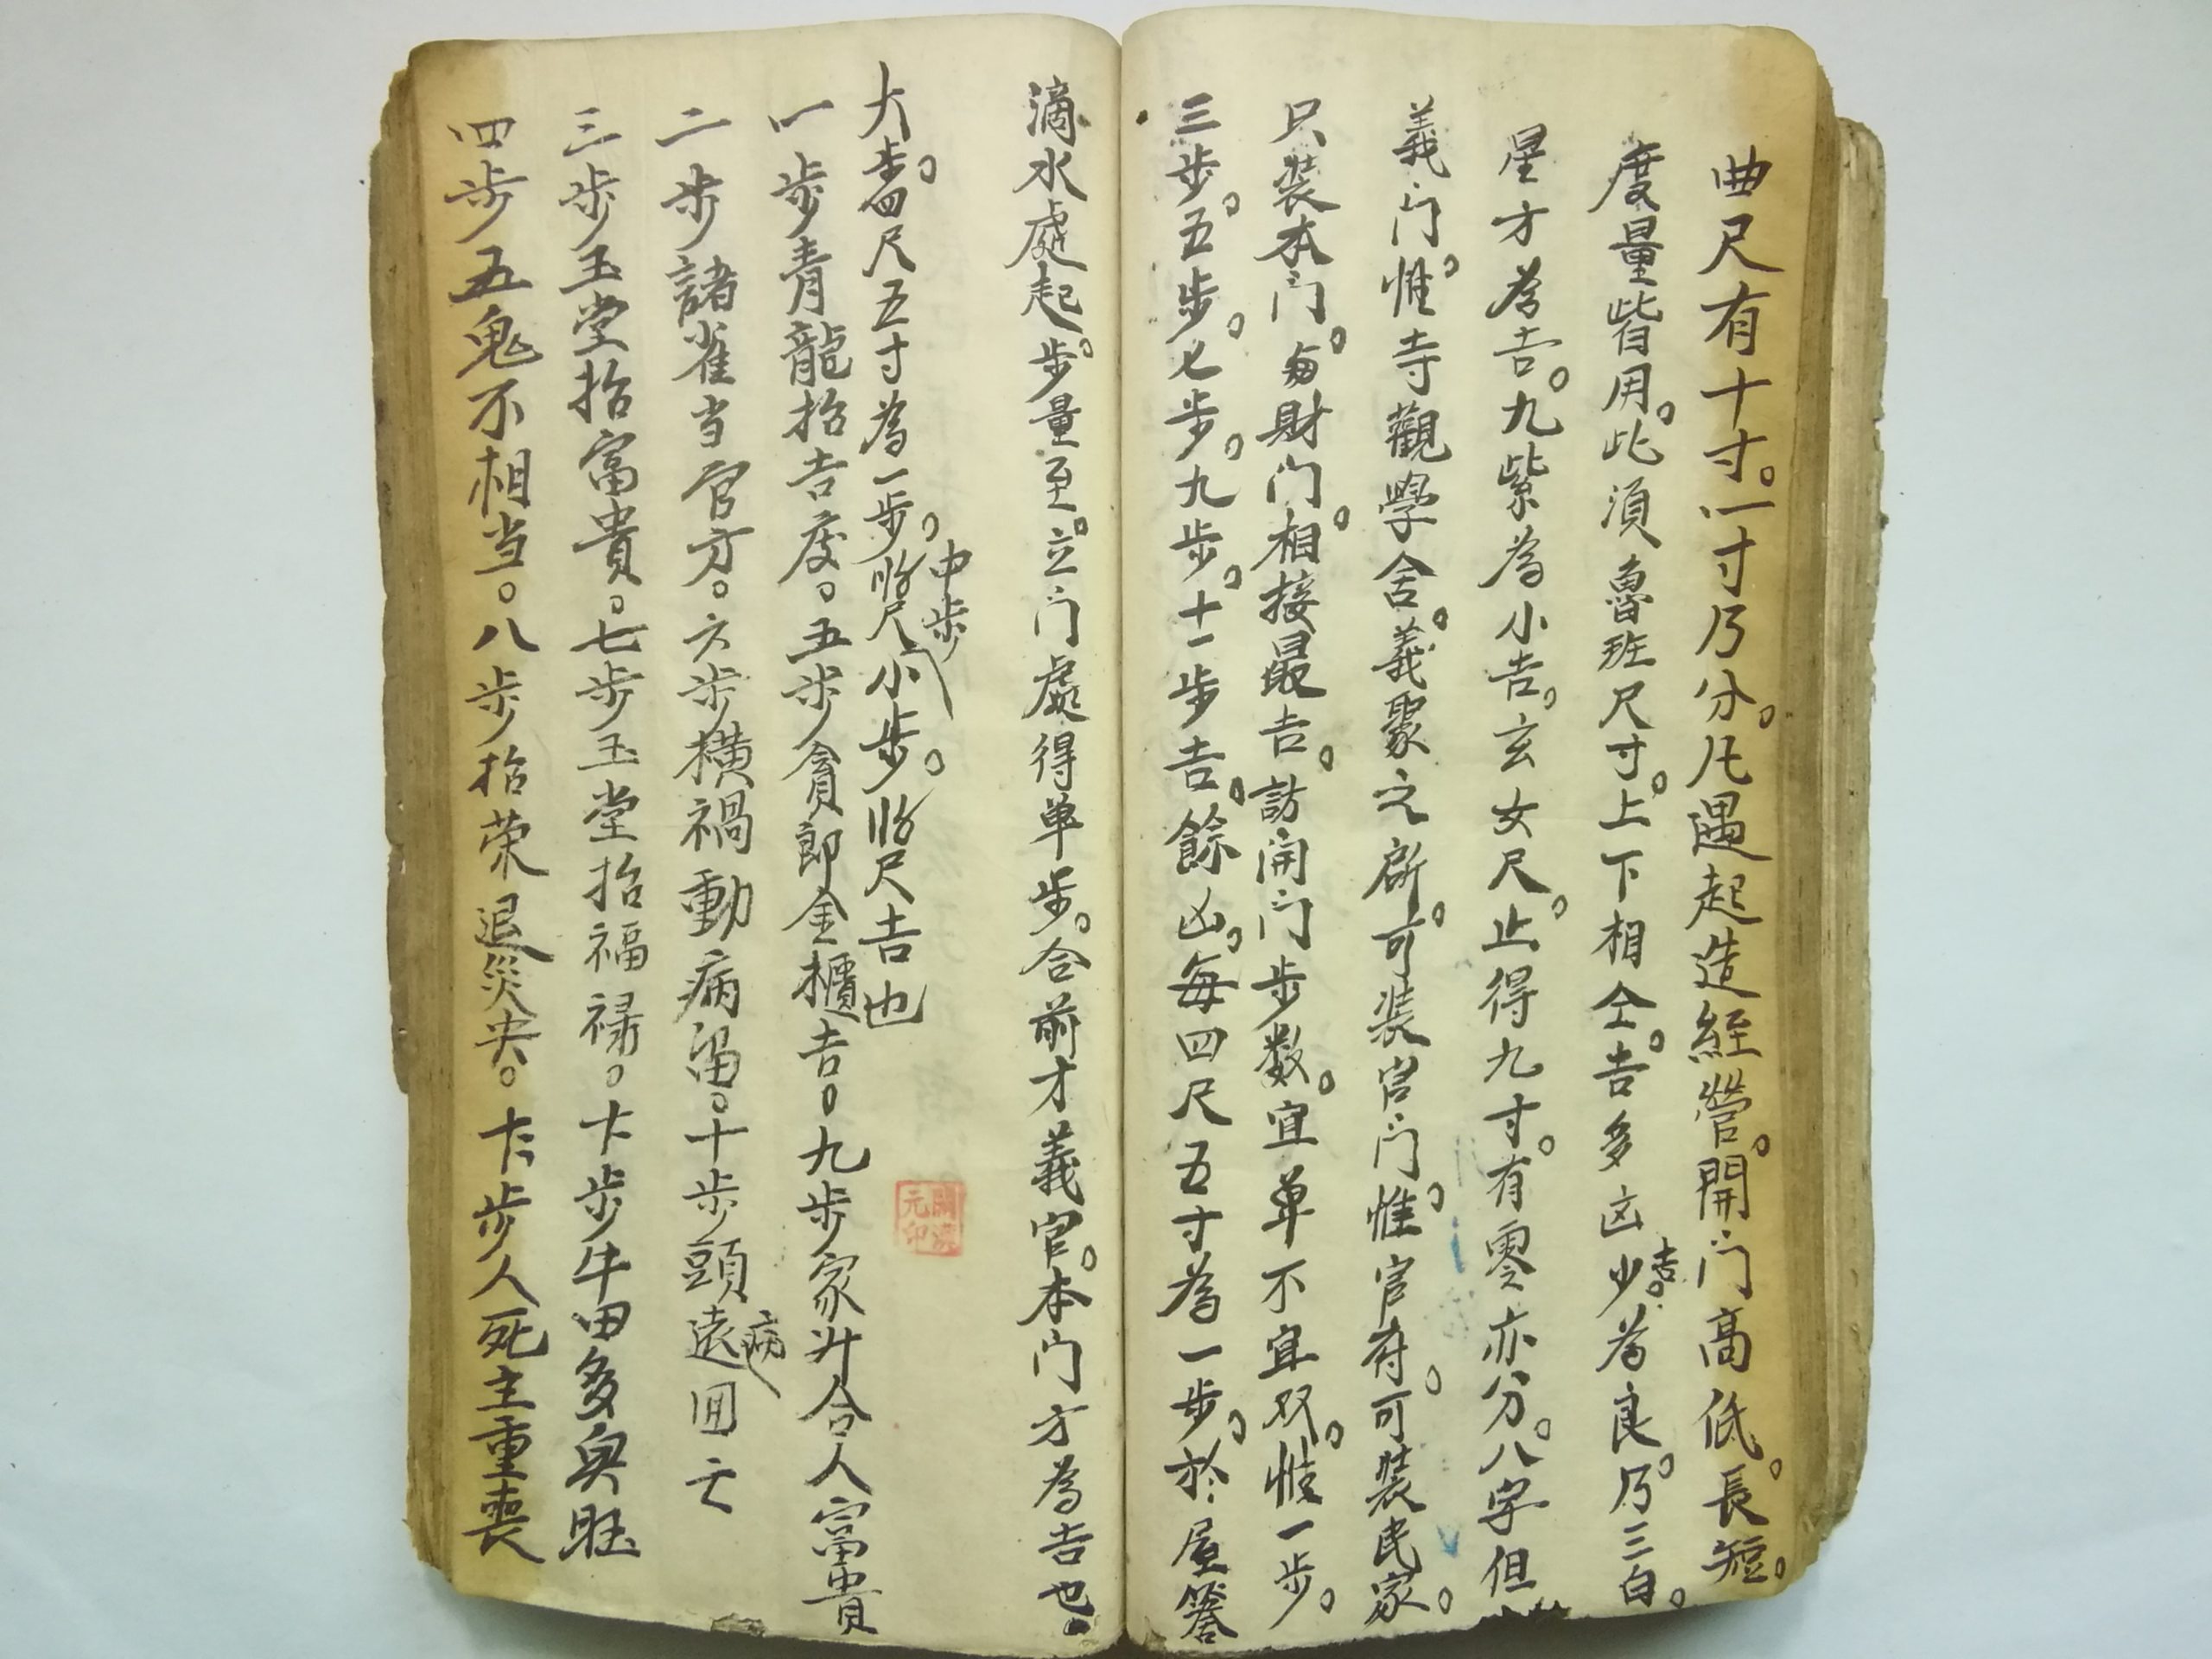 曲尺有十寸。一寸乃分。凡遇起造經營。開门高低。長短。
度量皆用。此湏魯班尺寸。上下相仝。吉多凶少。吉為良。乃三白。
星方為吉。九紫為小吉。玄女尺。止得九寸。有零亦分。八字但
義门。惟寺觀學舍。義聚之所。可装官门。惟官府。可装民家。
只装本门。与財门。相接最吉。訪開门步数。宜单不宜双。惟一步。
三步。五步。七步。九步。十一步吉。餘凶。每四尺五寸為一步。於屋簷
滴水處起。步量至。立门處得单步。合前才義官。本门方為吉也。
大步。四尺五寸為一步。中步尺小步。尺吉也
一步青龍招吉慶。五步貪郎金櫃吉。九步家升合人富貴
二步諸雀当官方。六步横禍動病。十步頭遠病回亡
三步玉堂招富貴。七步玉堂招福禄。步牛田多興旺
四步五鬼不相当。八步招荣退災央。步人死主重喪
開
元印